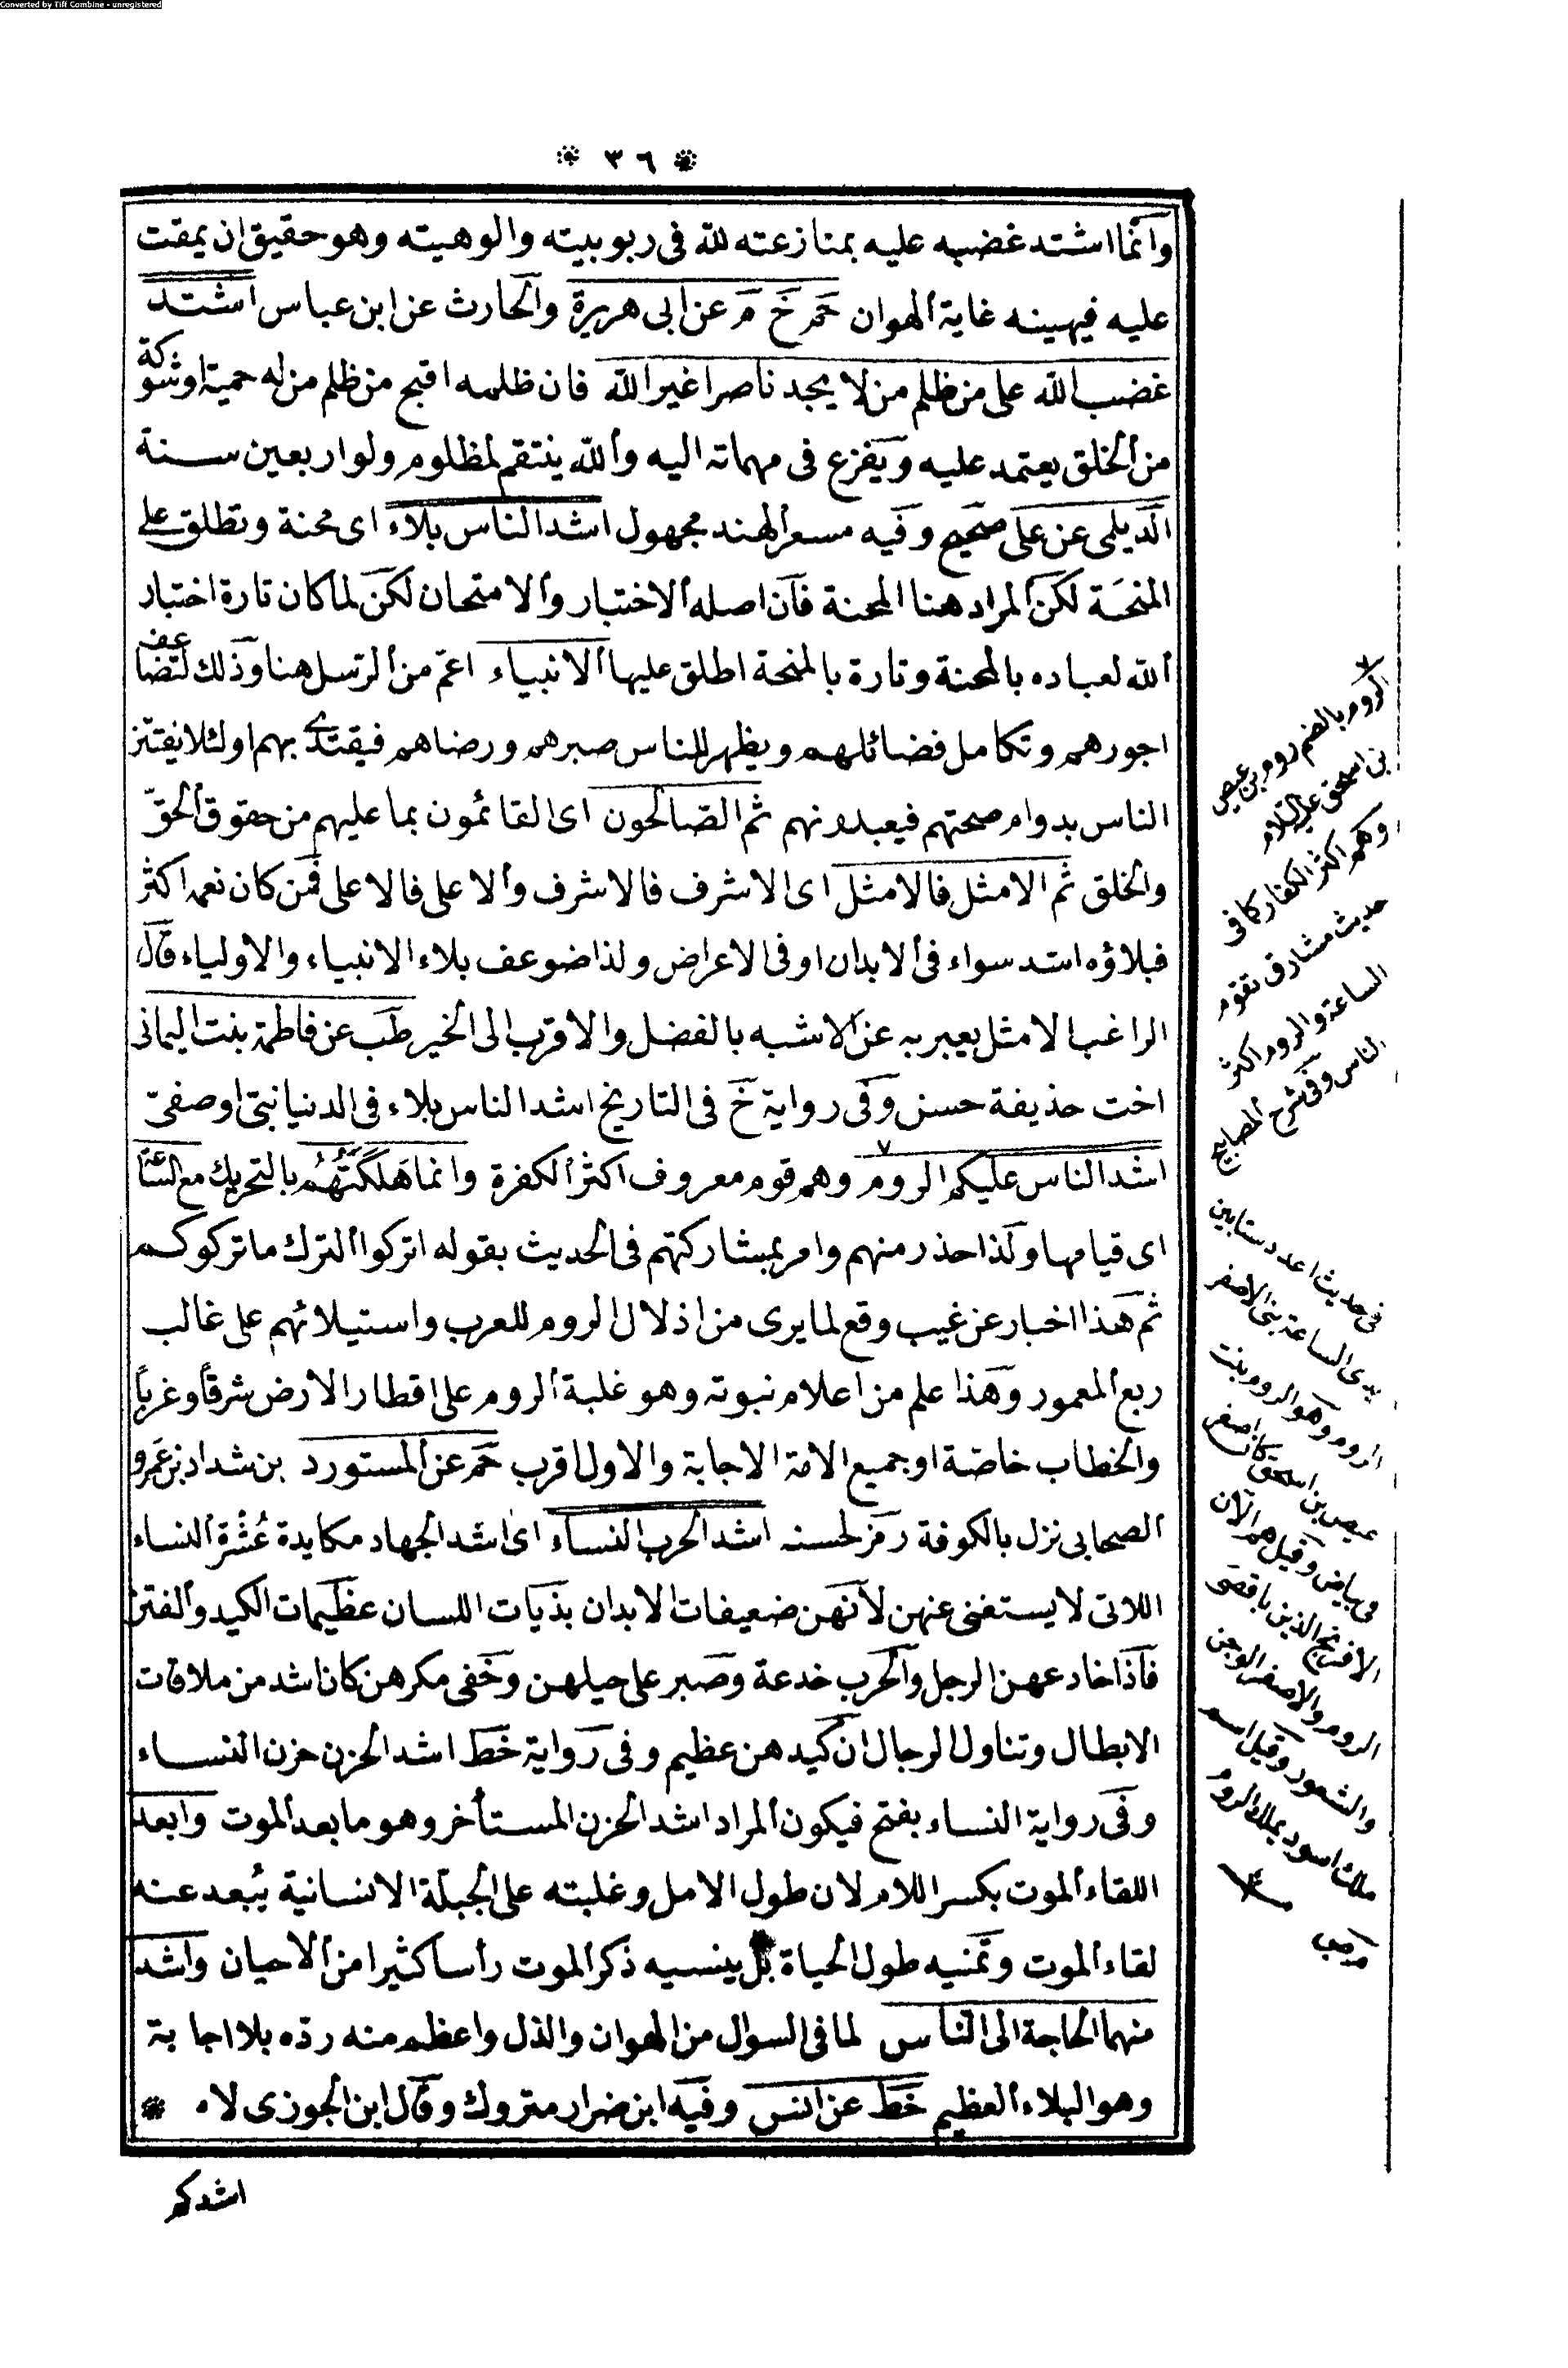 Converted by Tiff Combine - unregistered
* ٣٦ *
وانما اشتد غضبه عليه بمنازعته لله فى ربوبيته والوهيته وهو حقيق ان يمقت
عليه فيهينه غاية الهوان حم خ م عن ابى هريرة والحارث عن ابن عباس اشتد
غضب الله على من ظلم من لا يجد ناصرا غير الله فان ظلمه اقبح من ظلم من له حمية او شوكة
من الخلق يعتمد عليه ويفزع فى مهماته اليه والله ينتقم لمظلوم ولو اربعين سنة
الديلمى عن على صحيح وفيه مسعر الهند مجهول اشد الناس بلاء اى محنة وتطلق على
المنحة لكن المراد هنا المحنة فان اصله الاختبار والامتحان لكن لما كان تارة اختبار
الله لعباده بالمحنة وتارة بالمنحة اطلق عليها الانبياء اعم من الرسل هنا وذلك لتضاعف
اجورهم وتكامل فضائلهم ويظهر للناس صبرهم ورضاهم فيقتدى بهم او لئلا يفتتن
الناس بدوام صحتهم فيعبدونهم ثم الصالحون اى القائمون بما عليهم من حقوق الحق
والخلق ثم الامثل فالامثل اى الاشرف فالاشرف والاعلى فالاعلى فمن كان نعمه اكثر
فبلاؤه اشد سواء فى الابدان او فى الاعراض ولذا ضوعف بلاء الانبياء والاولياء قال
الراغب الامثل يعبر به عن الاشبه بالفضل والاقرب الى الخير طب عن فاطمة بنت اليمانى
اخت حذيفة حسن وفى رواية خ فى التاريخ اشد الناس بلاء فى الدنيا نبى او صفى
اشد الناس عليكم الروم ٧ وهم قوم معروف اكثر الكفرة وانما هَلَكَتُهُم بالتحريك مع الساعة
اى قيامها ولذا حذر منهم وامر بمشاركتهم فى الحديث بقوله اتركوا الترك ما تركوكم
ثم هذا اخبار عن غيب وقع لما يرى من اذلال الروم للعرب واستيلائهم على غالب
ربع المعمور وهذا علم من اعلام نبوته وهو غلبة الروم على اقطار الارض شرقاً وغرباً
والخطاب خاصة او جميع الامة الاجابة والاول اقرب حم عن المستورد بن شداد بن عمرو
الصحابى نزل بالكوفة رمز لحسنه اشد الحرب النساء اى اشد الجهاد مكايدة عُشْرة النساء
اللاتى لا يستغنى عنهن لانهن ضعيفات الابدان بذيات اللسان عظيمات الكيد والفتن
فاذا خادعهن الرجل والحرب خدعة وصبر على حيلهن وخفى مكرهن كان اشد من ملاقات
الابطال وتناول الرجال ان كيدهن عظيم وفى رواية خط اشد الحزن حزن النساء
وفى رواية النساء بفتح فيكون المراد اشد الحزن المستأخر وهو ما بعد الموت وابعد
اللقاء الموت بكسر اللام لان طول الامل وغلبته على الجبلة الانسانية يُبعد عنه
لقاء الموت وتمنيه طول الحياة بل ينسيه ذكر الموت رأسا كثيرا من الاحيان واشد
منهما الحاجة الى الناس لما فى السوال من الهوان والذل واعظم منه رده بلا اجابة
وهو البلاء العظيم خط عن انس وفيه ابن ضرار متروك وقال ابن الجوزى لا *
اشدكم
٧
الروم بالضم روم بن عيص
بن اسحق عليه السلام
وهم اكثر الكفار كما فى
حديث مشارق تقوم
الساعة والروم اكثر
الناس وفى شرح المصابيح
فى حديث اعدد ستا بين
يدى الساعة بنى الاصفر
الروم وهو الروم بنت
عيص بن اسحق كان اصفر
فى بياض وقيل هم الآن
الافرنج الذين باقصى
الروم والاصفر الوجن
والشعور وقيل اسم
ملك اسود يملك الروم